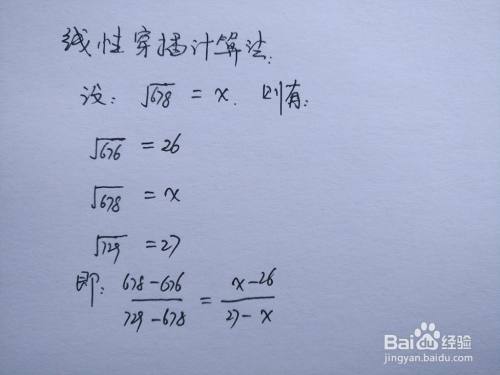 线性穿插计算法:
设: √678 = x. 则有:
√676 = 26
√678 = x
√729 = 27
即: (678-676)/(729-678) = (x-26)/(27-x)
Baidu 经验
jingyan.baidu.com